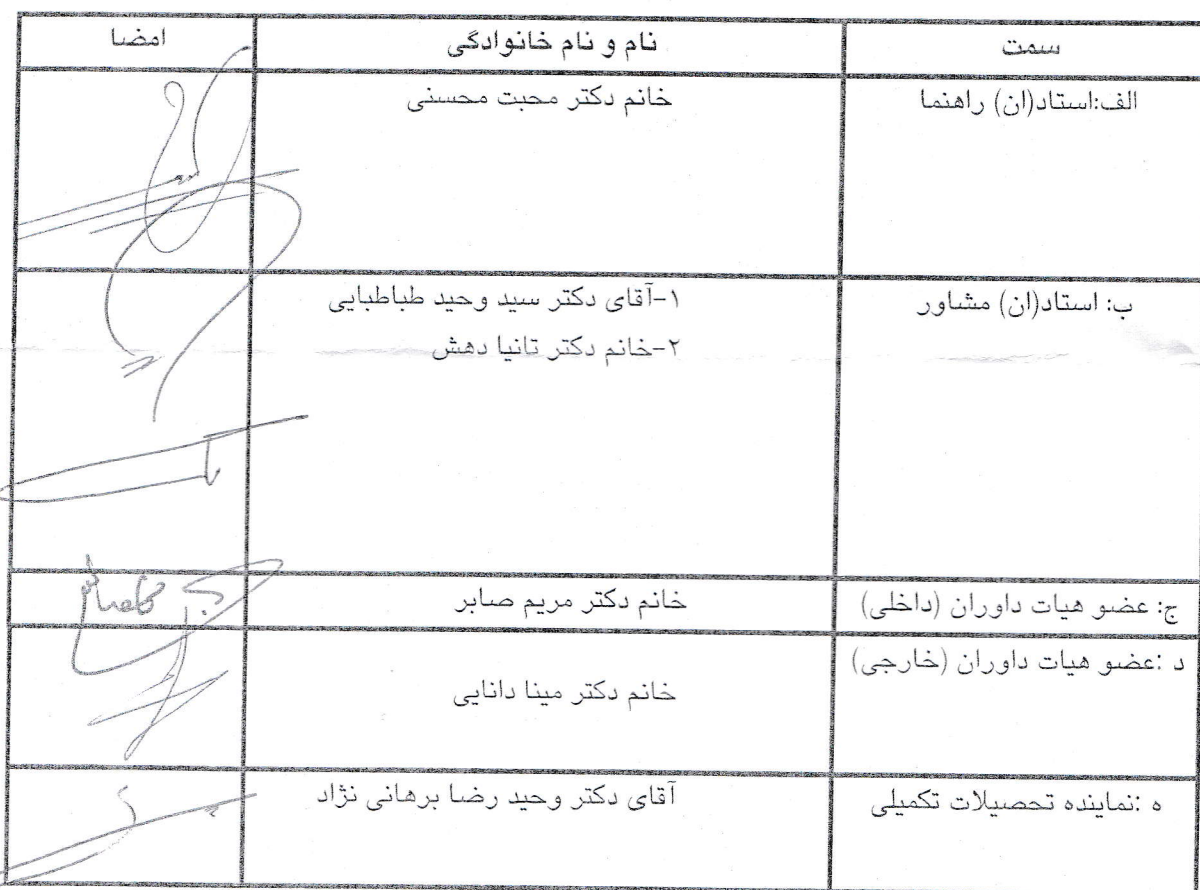 سمت	نام و نام خانوادگی	امضا
الف:استاد(ان) راهنما	خانم دکتر محبت محسنی
ب: استاد(ان) مشاور	۱-آقای دکتر سید وحید طباطبایی
۲-خانم دکتر تانیا دهش
ج: عضو هیات داوران (داخلی)	خانم دکتر مریم صابر
د :عضو هیات داوران (خارجی)	خانم دکتر مینا دانایی
ه :نماینده تحصیلات تکمیلی	آقای دکتر وحید رضا برهانی نژاد